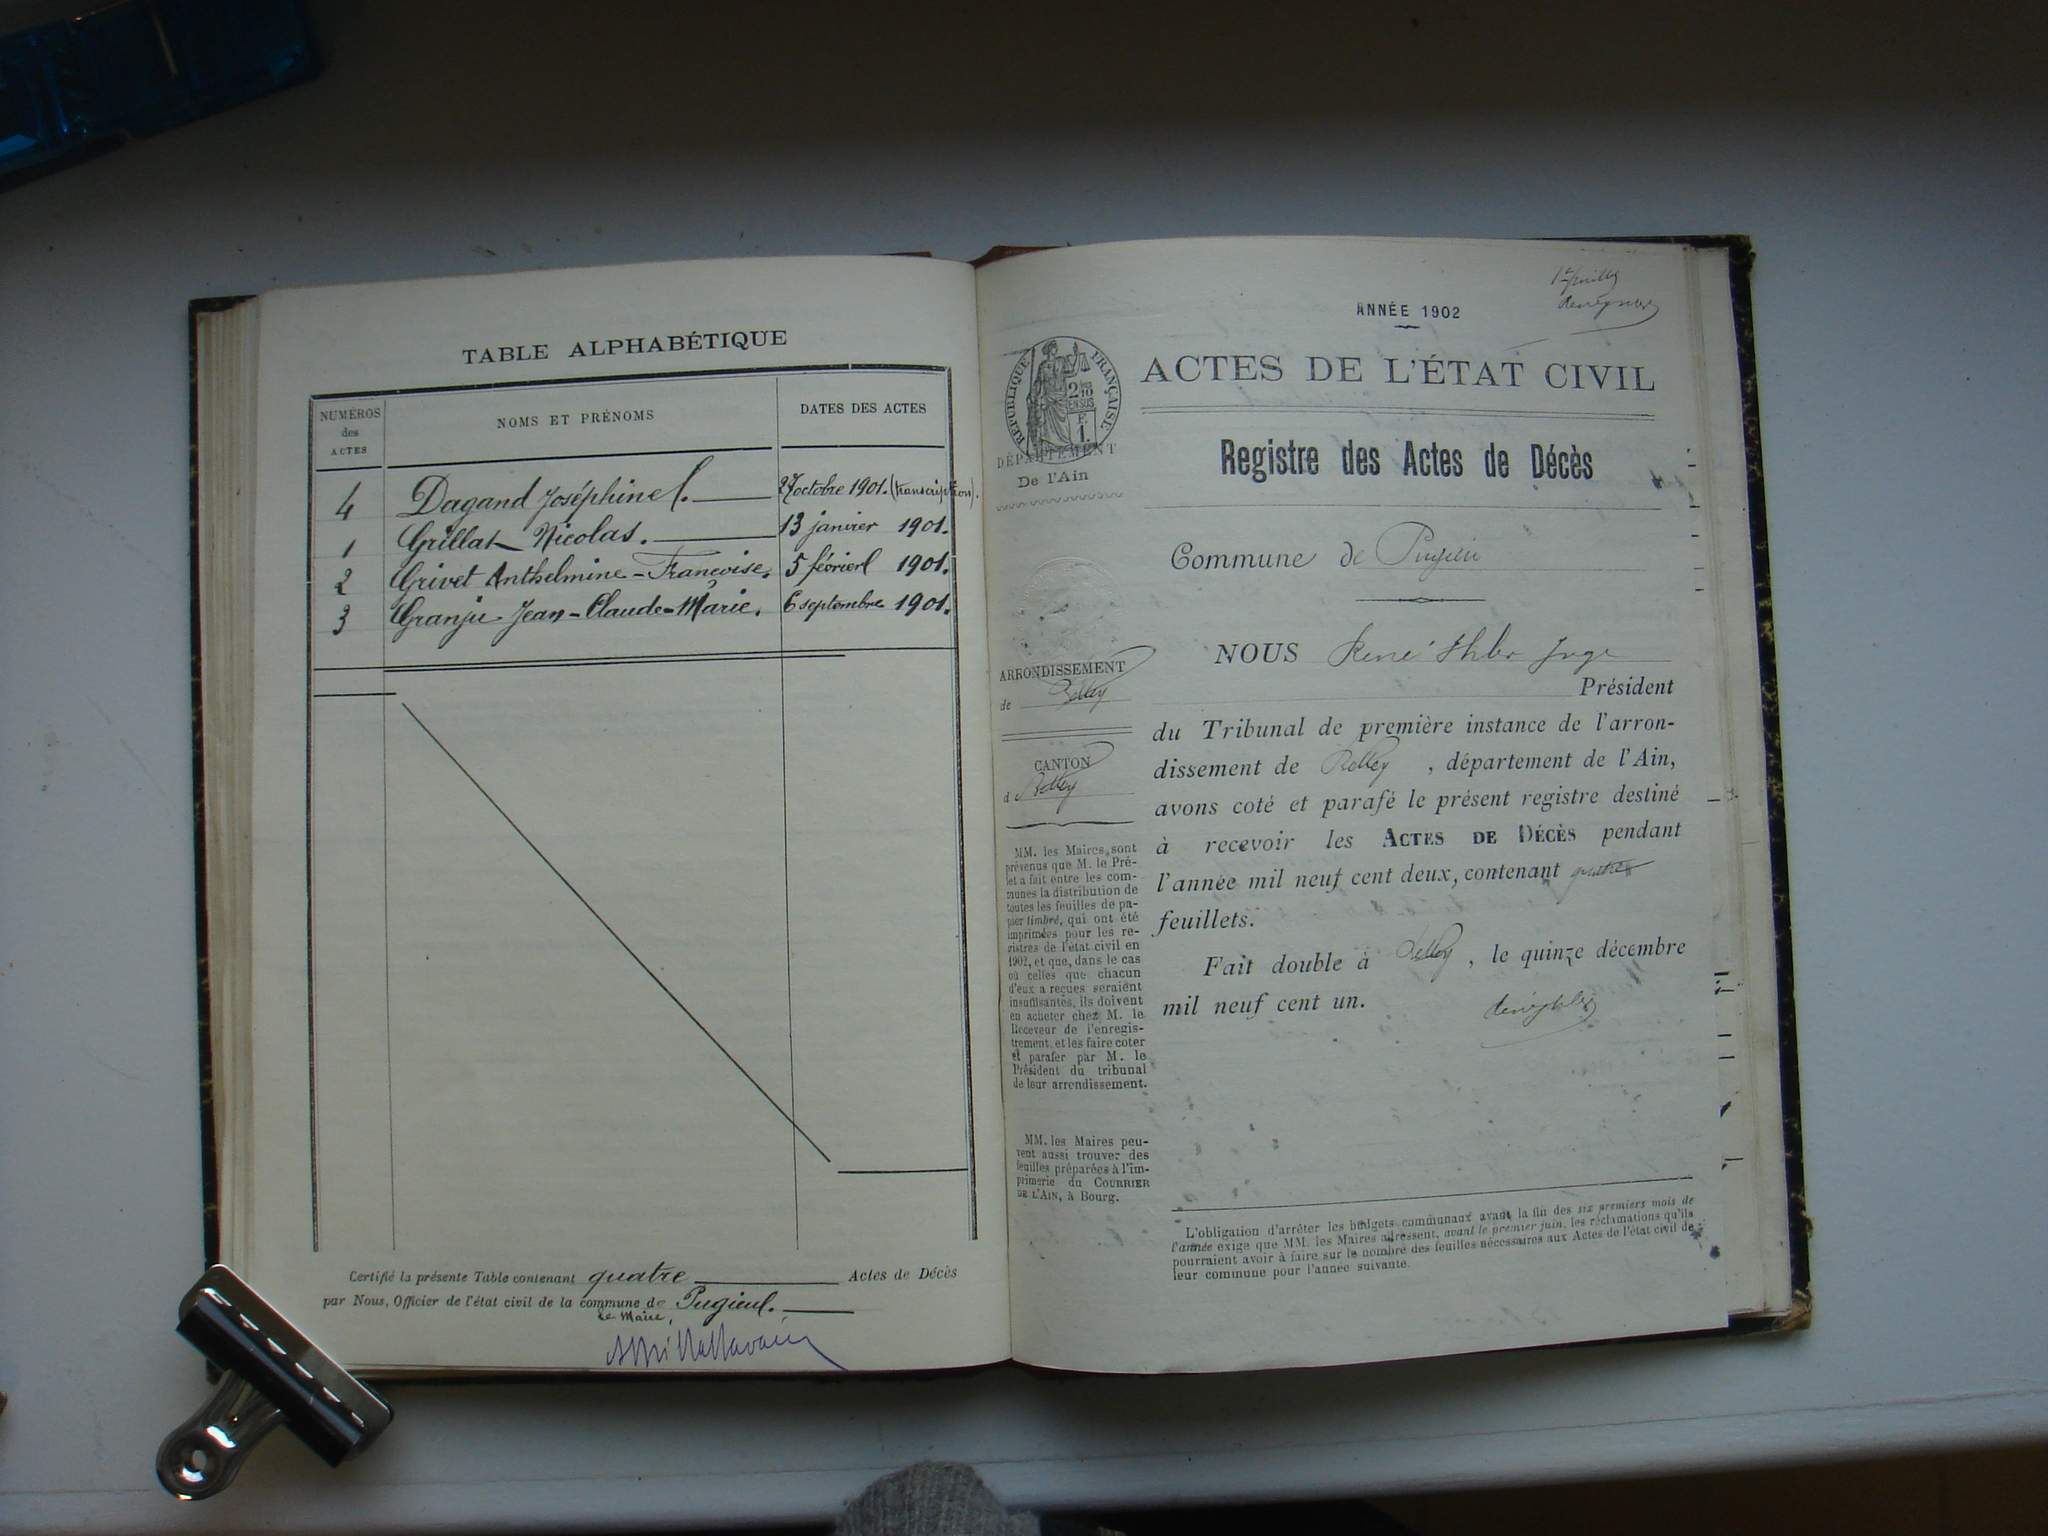 TABLE ALPHABÉTIQUE
NUMÉROS des ACTES
NOMS ET PRÉNOMS
DATES DES ACTES
4 Dagand Joséphine 27 octobre 1901. (transcription).
1 Grillat Nicolas. 13 janvier 1901.
2 Grivet Anthelmine-Françoise. 5 février 1901.
3 Granju Jean-Claude-Marie. 6 septembre 1901.
Certifié la présente Table contenant quatre Actes de Décès
par Nous, Officier de l'état civil de la commune de Pugieu.
Le Maire,
ANNÉE 1902
ACTES DE L'ÉTAT CIVIL
RÉPUBLIQUE FRANÇAISE
2/10 EN SUS
F. 1.
DÉPARTEMENT
De l'Ain
Registre des Actes de Décès
Commune de Pugieu
NOUS René Juge
Président
ARRONDISSEMENT
de Belley
CANTON
d Belley
du Tribunal de première instance de l'arron-
dissement de Belley, département de l'Ain,
avons coté et parafé le présent registre destiné
à recevoir les ACTES DE DÉCÈS pendant
l'année mil neuf cent deux, contenant quatre
feuillets.
Fait double à Belley, le quinze décembre
mil neuf cent un.
MM. les Maires sont
prévenus que M. le Pré-
fet a fait entre les com-
munes la distribution de
toutes les feuilles de pa-
pier timbré, qui ont été
imprimées pour les re-
gistres de l'état civil en
1902, et que, dans le cas
où celles que chacun
d'eux a reçues seraient
insuffisantes, ils doivent
en acheter chez M. le
Receveur de l'enregis-
trement, et les faire coter
et parafer par M. le
Président du tribunal
de leur arrondissement.
MM. les Maires peu-
vent aussi trouver des
feuilles préparées à l'im-
primerie du COURRIER
DE L'AIN, à Bourg.
L'obligation d'arrêter les budgets communaux avant la fin des six premiers mois de
l'année exige que MM. les Maires adressent, avant le premier juin, les réclamations qu'ils
pourraient avoir à faire sur le nombre des feuilles nécessaires aux Actes de l'état civil de
leur commune pour l'année suivante.